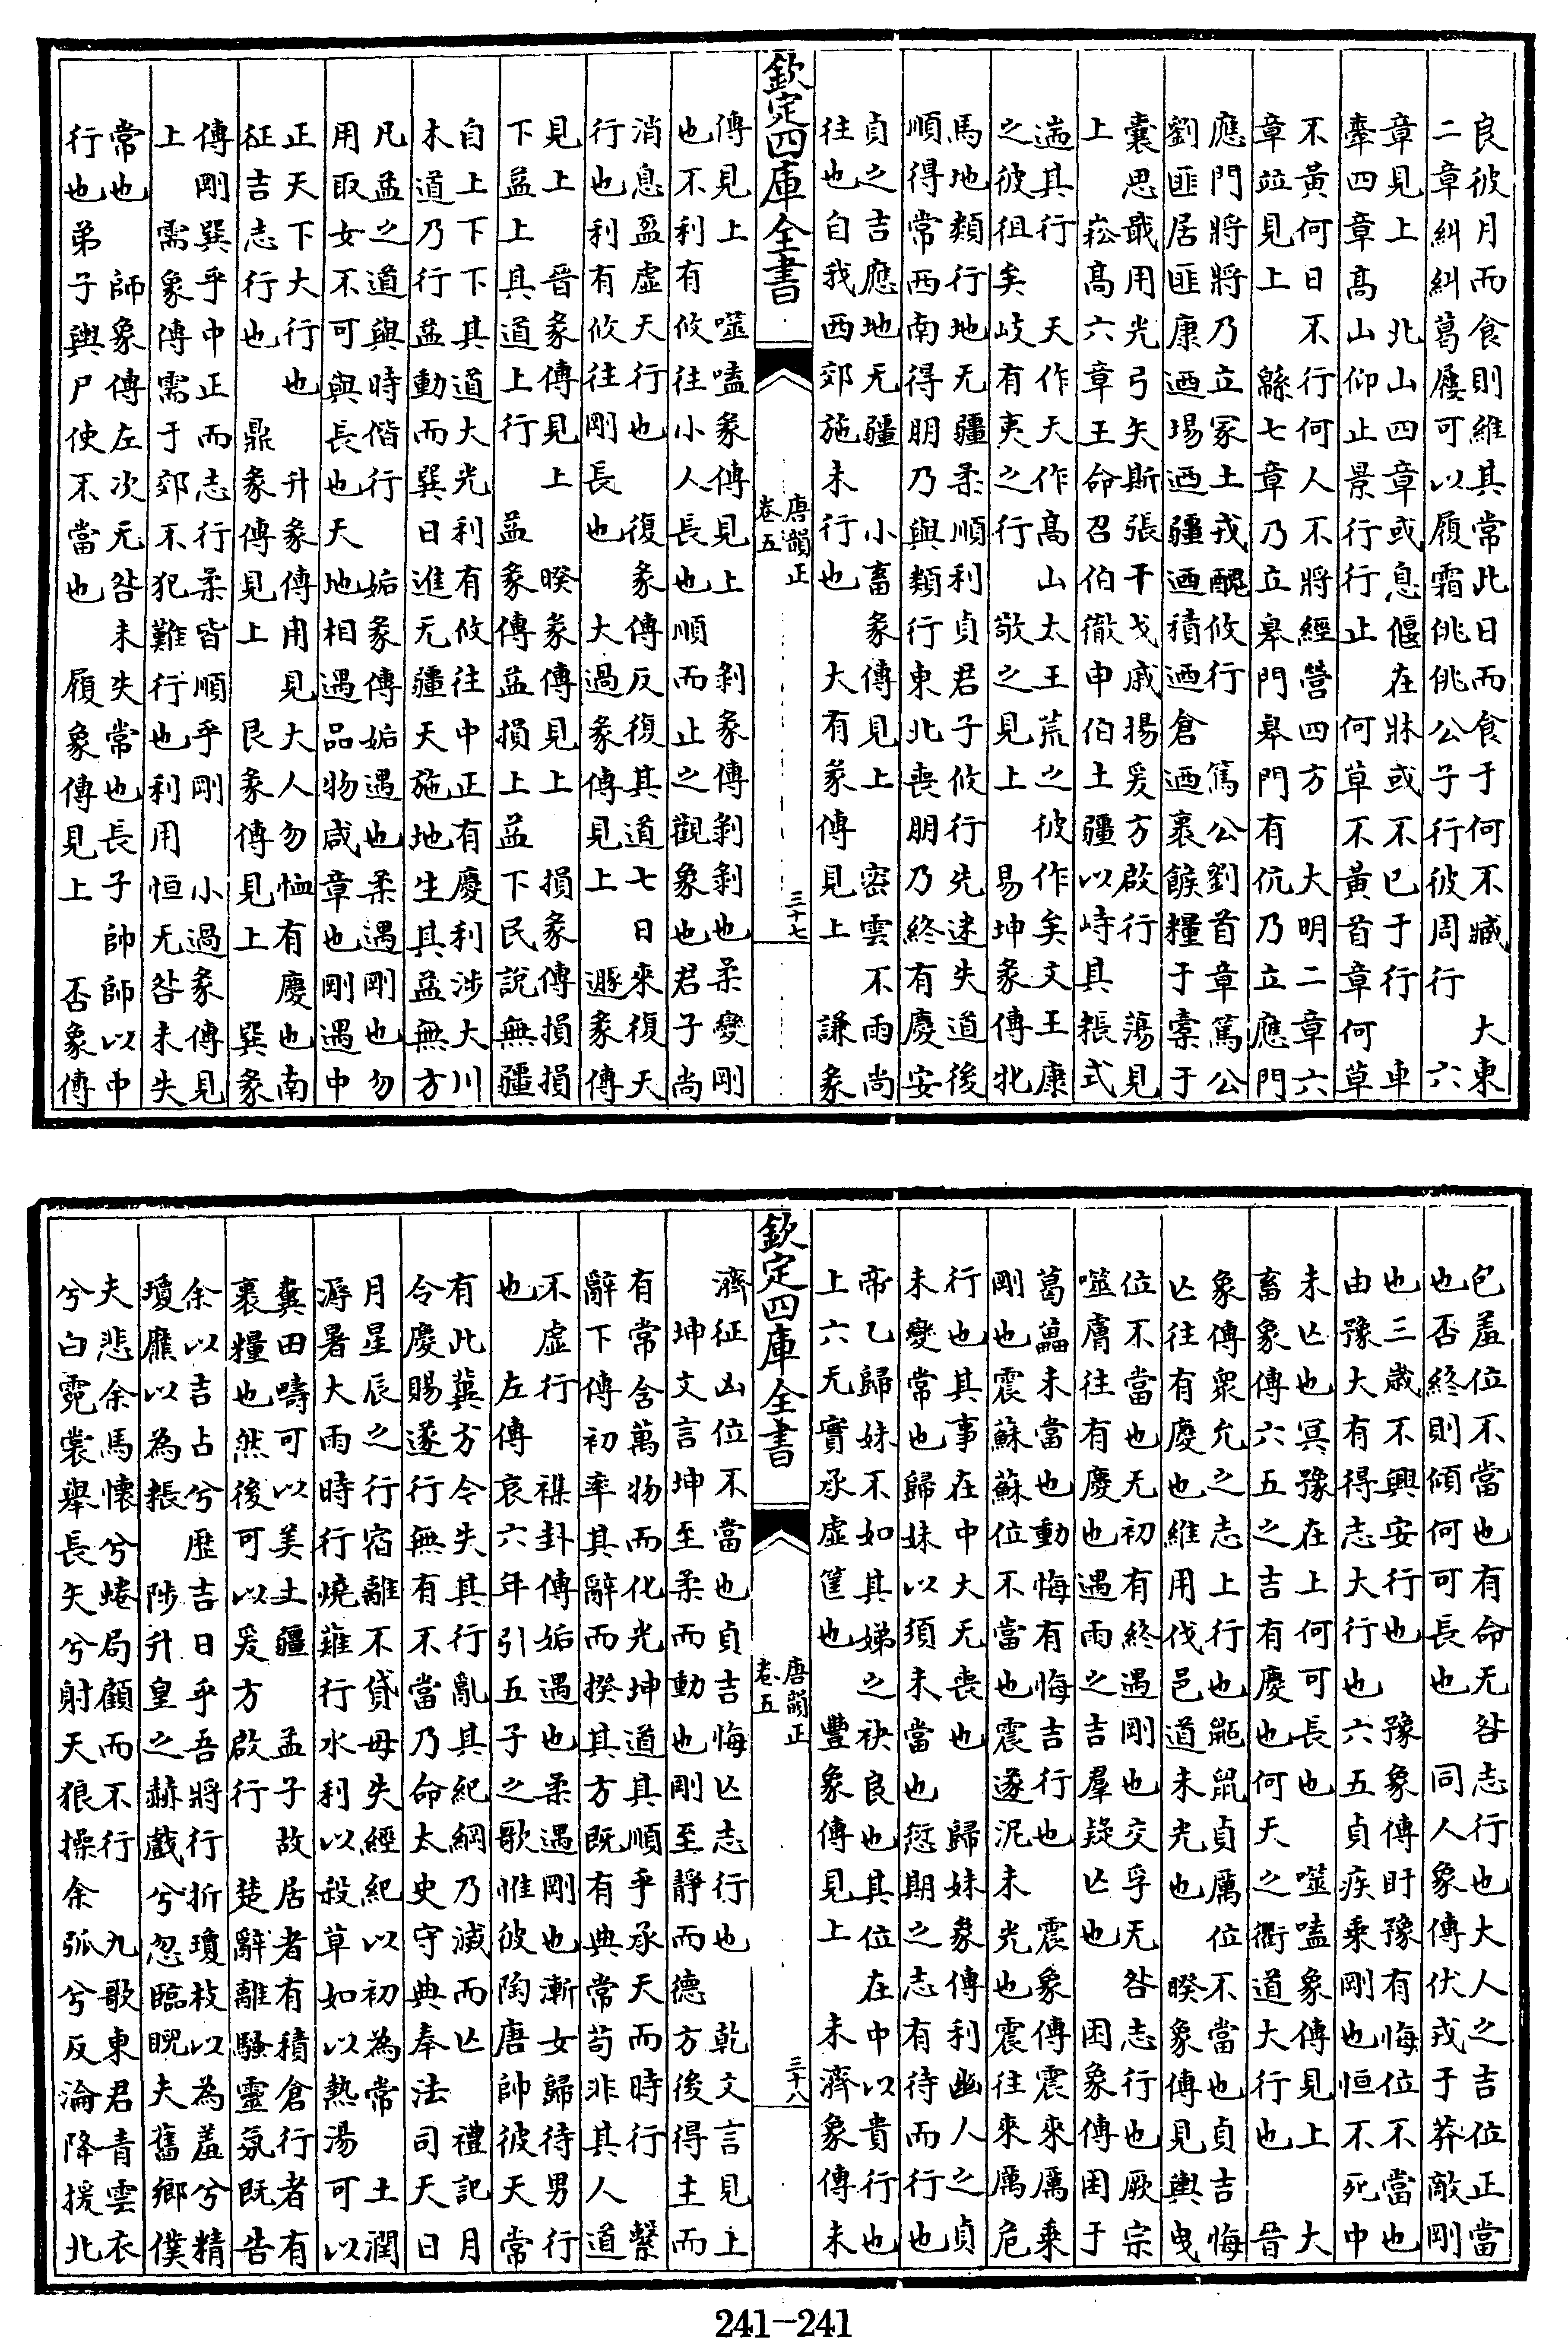 良彼月而食則維其常此日而食于何不臧　大東
二章糾糾葛屨可以履霜佻佻公子行彼周行　六
章見上　北山四章或息偃在牀或不已于行　車
舝四章高山仰止景行行止　何草不黃首章何草
不黃何日不行何人不將經營四方　大明二章六
章竝見上　緜七章乃立臯門臯門有伉乃立應門
應門將將乃立冢土戎醜攸行　篤公劉首章篤公
劉匪居匪康迺埸迺疆迺積迺倉迺裹餱糧于橐于
囊思戢用光弓矢斯張干戈戚揚爰方啟行　蕩見
上　崧高六章王命召伯徹申伯土疆以峙其粻式
遄其行　天作天作高山太王荒之彼作矣文王康
之彼徂矣岐有夷之行　敬之見上　易坤彖傳牝
馬地類行地无疆柔順利貞君子攸行先迷失道後
順得常西南得朋乃與類行東北喪朋乃終有慶安
貞之吉應地无疆　小畜彖傳見上　密雲不雨尚
往也自我西郊施未行也　大有彖傳見上　謙彖
欽定四庫全書
唐韻正
卷五
三十七
傳見上　噬嗑彖傳見上　剝彖傳剝剝也柔變剛
也不利有攸往小人長也順而止之觀象也君子尚
消息盈虛天行也　復彖傳反復其道七日來復天
行也利有攸往剛長也　大過彖傳見上　遯彖傳
見上　晉彖傳見上　睽彖傳見上　損彖傳損損
下益上其道上行　益彖傳益損上益下民說無疆
自上下下其道大光利有攸往中正有慶利涉大川
木道乃行益動而巽日進无疆天施地生其益無方
凡益之道與時偕行　姤彖傳姤遇也柔遇剛也勿
用取女不可與長也天地相遇品物咸章也剛遇中
正天下大行也　升彖傳用見大人勿恤有慶也南
征吉志行也　鼎彖傳見上　艮彖傳見上　巽彖
傳剛巽乎中正而志行柔皆順乎剛　小過彖傳見
上　需象傳需于郊不犯難行也利用恒无咎未失
常也　師象傳左次无咎未失常也長子帥師以中
行也弟子輿尸使不當也　履象傳見上　否象傳
包羞位不當也有命无咎志行也大人之吉位正當
也否終則傾何可長也　同人象傳伏戎于莽敵剛
也三歲不興安行也　豫象傳盱豫有悔位不當也
由豫大有得志大行也六五貞疾乘剛也恒不死中
未亡也冥豫在上何可長也　噬嗑象傳見上　大
畜象傳六五之吉有慶也何天之衢道大行也　晉
象傳眾允之志上行也鼫鼠貞厲位不當也貞吉悔
亡往有慶也維用伐邑道未光也　睽象傳見輿曳
位不當也无初有終遇剛也交孚无咎志行也厥宗
噬膚往有慶也遇雨之吉羣疑亡也　困象傳困于
葛藟未當也動悔有悔吉行也　震象傳震來厲乘
剛也震蘇蘇位不當也震遂泥未光也震往來厲危
行也其事在中大无喪也　歸妹象傳利幽人之貞
未變常也歸妹以須未當也愆期之志有待而行也
帝乙歸妹不如其娣之袂良也其位在中以貴行也
上六无實承虛筐也　豐象傳見上　未濟象傳未
欽定四庫全書
唐韻正
卷五
三十八
濟征凶位不當也貞吉悔亡志行也　乾文言見上
坤文言坤至柔而動也剛至靜而德方後得主而
有常含萬物而化光坤道其順乎承天而時行　繫
辭下傳初率其辭而揆其方既有典常苟非其人道
不虛行　襍卦傳姤遇也柔遇剛也漸女歸待男行
也　左傳哀六年引五子之歌惟彼陶唐帥彼天常
有此冀方今失其行亂其紀綱乃滅而亡　禮記月
令慶賜遂行無有不當乃命太史守典奉法司天日
月星辰之行宿離不貸毋失經紀以初為常　土潤
溽暑大雨時行燒薙行水利以殺草如以熱湯可以
糞田疇可以美土疆　孟子故居者有積倉行者有
裹糧也然後可以爰方啟行　楚辭離騷靈氛既告
余以吉占兮歷吉日乎吾將行折瓊枝以為羞兮精
瓊爢以為粻　陟升皇之赫戲兮忽臨睨夫舊鄉僕
夫悲余馬懷兮蜷局顧而不行　九歌東君青雲衣
兮白霓裳舉長矢兮射天狼操余弧兮反淪降援北
241-241